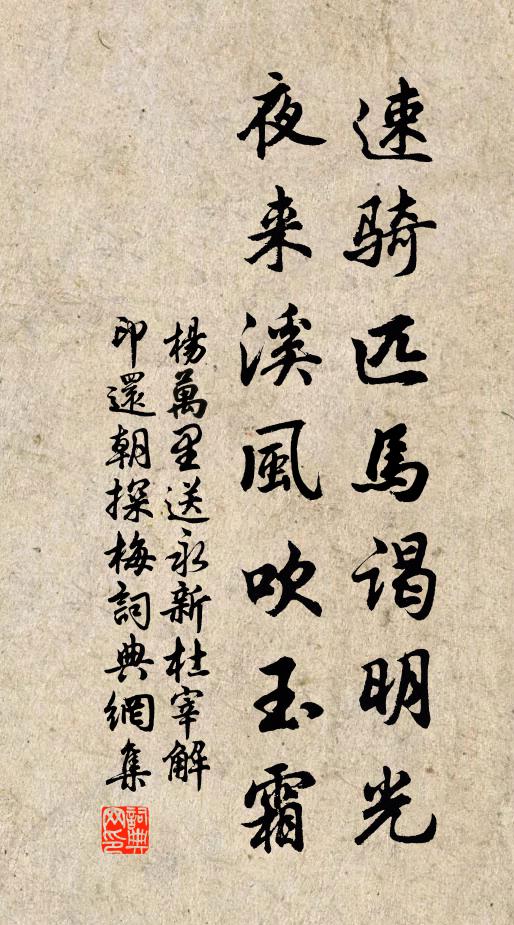 速騎匹馬謁明光
夜来溪風吹玉霜
楊萬里送永新杜宰解
印還朝探梅詞典網集
詞典网印